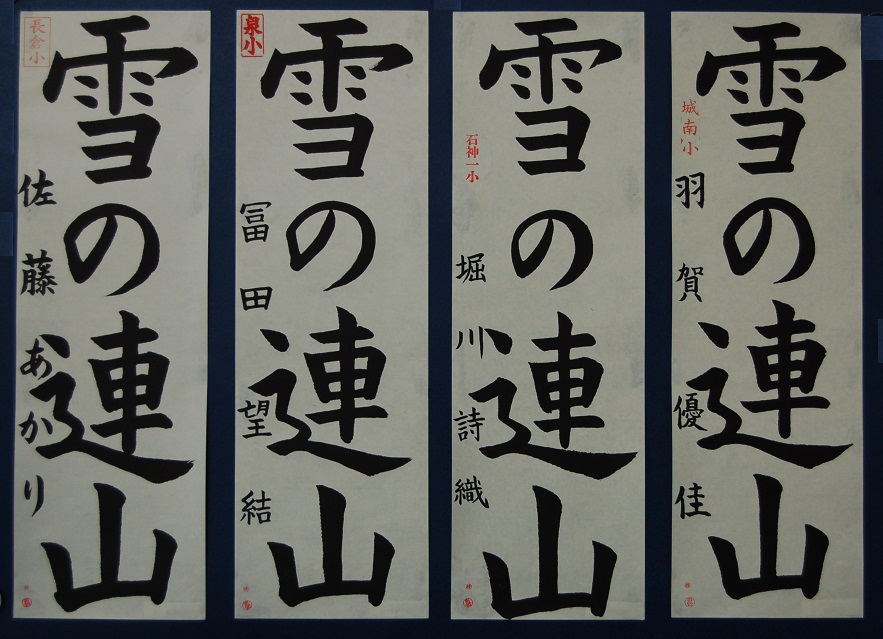 雪の連山
長倉小
佐藤あかり
雪の連山
泉小
冨田望結
雪の連山
石神一小
堀川詩織
雪の連山
城南小
羽賀優佳